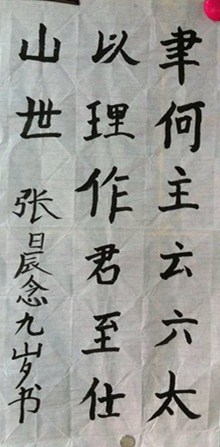 聿何主云六太
以理作君至仕
山世
张日辰念九岁书